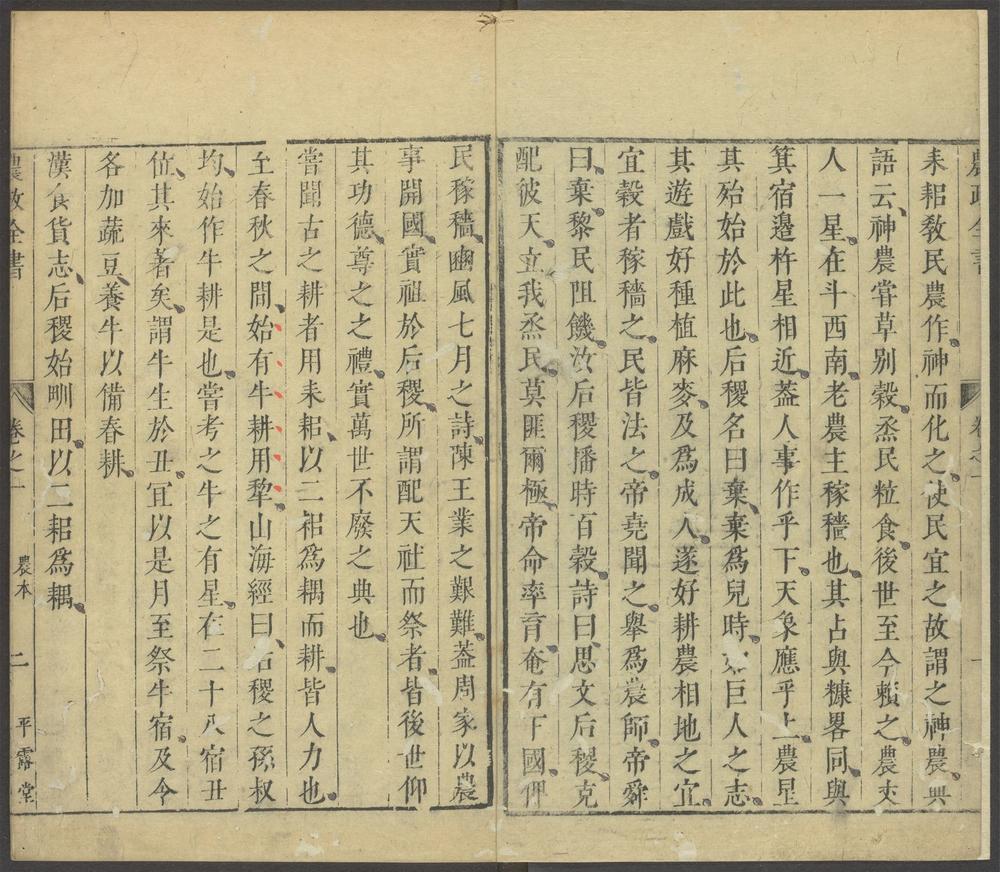 農政全書 卷之一 一
耒耜敎民農作神而化之使民宜之故謂之神農典
語云神農嘗草别穀烝民粒食後世至今賴之農丈
人一星在斗西南老農主稼穡也其占與糠畧同與
箕宿邉杵星相近葢人事作乎下天象應乎上農星
其殆始於此也后稷名曰棄棄為兒時如巨人之志
其遊戲好種植麻麥及為成人遂好耕農相地之宜
宜穀者稼穡之民皆法之帝堯聞之舉為農師帝舜
曰棄黎民阻饑汝后稷播時百穀詩曰思文后稷克
配彼天立我烝民莫匪爾極帝命率育奄有下國俾
民稼穡豳風七月之詩陳王業之艱難葢周家以農
事開國實祖於后稷所謂配天社而祭者皆後世仰
其功德尊之之禮實萬世不廢之典也
嘗聞古之耕者用耒耜以二耜為耦而耕皆人力也
至春秋之間始有牛耕用犂山海經曰后稷之孫叔
均始作牛耕是也嘗考之牛之有星在二十八宿丑
位其來著矣謂牛生於丑宜以是月至祭牛宿及今
各加蔬豆養牛以備春耕
漢食貨志后稷始甽田以二耜為耦
農政全書 卷之一 農本 二 平露堂